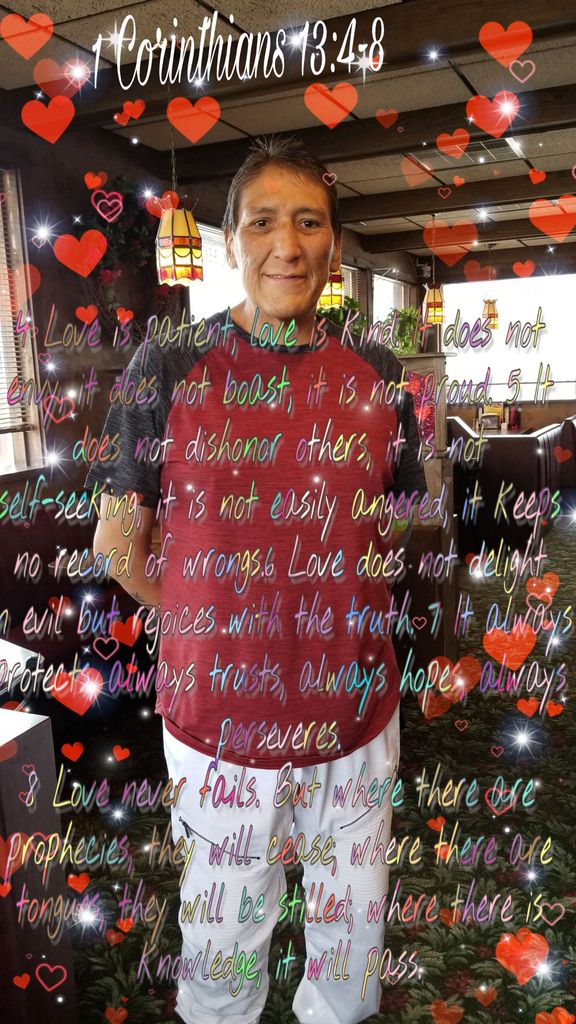 1 Corinthians 13:4-8
4 Love is patient, love is kind. It does not
envy, it does not boast, it is not proud. 5 It
does not dishonor others, it is not
self-seeking, it is not easily angered, it keeps
no record of wrongs.6 Love does not delight
n evil but rejoices with the truth. 7 It always
protects, always trusts, always hopes, always
perseveres.
8 Love never fails. But where there are
prophecies, they will cease; where there are
tongues, they will be stilled; where there is
knowledge, it will pass.